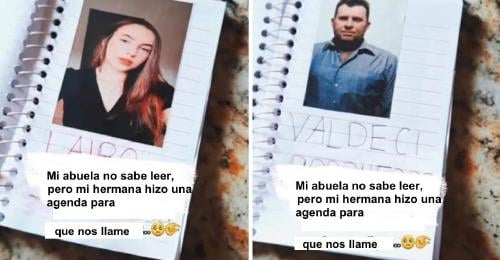 Mi abuela no sabe leer,
pero mi hermana hizo una
agenda para
que nos llame
VALDECI
Mi abuela no sabe leer,
pero mi hermana hizo una
agenda para
que nos llame